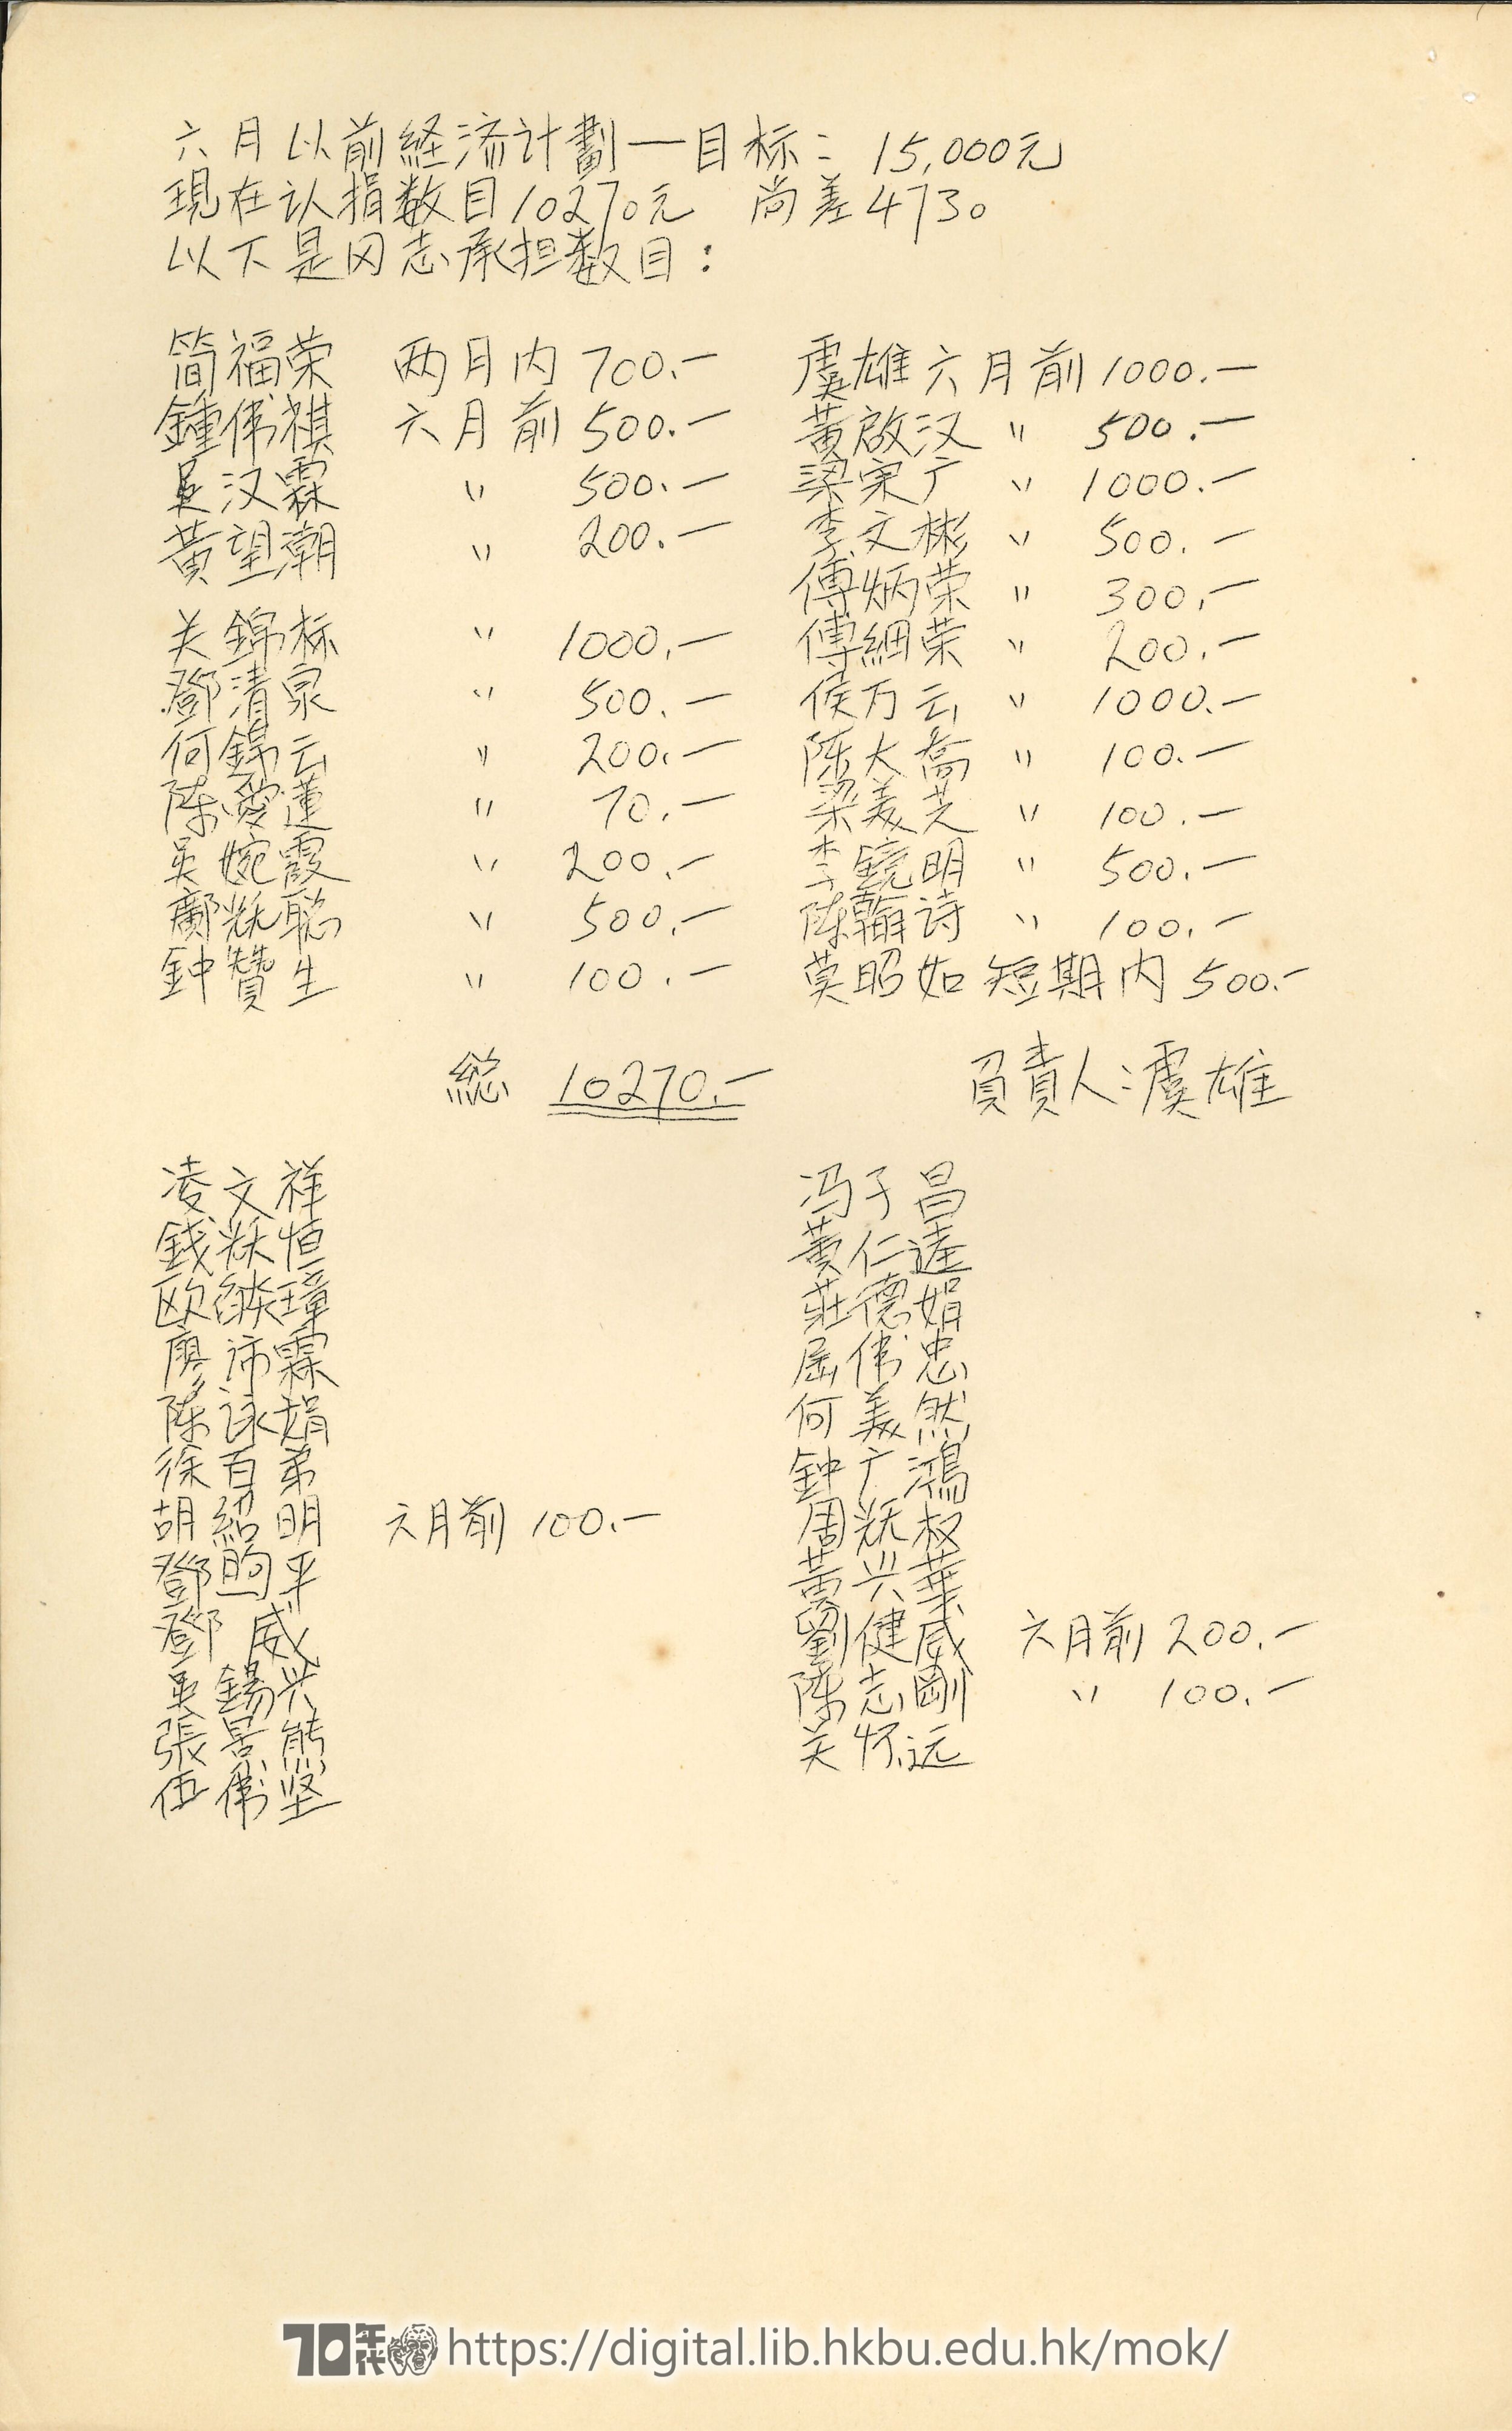 六月以前経济计劃—目标: 15,000元
現在认捐数目10270元 尚差4730
以下是同志承担数目:
简福荣 两月内 700.—
鍾伟祺 六月前 500.—
吴汉霖 〃 500.—
黃望潮 〃 200.—
关錦标 〃 1000.—
鄧清泉 〃 500.—
何錦云 〃 200.—
陈爱蓮 〃 70.—
吴婉霞 〃 200.—
鄺耀聪 〃 500.—
钟贊生 〃 100.—
虞雄 六月前 1000.—
黃啟汉 〃 500.—
梁宋广 〃 1000.—
李文彬 〃 500.—
傅炳荣 〃 300.—
傅細荣 〃 200.—
侯万云 〃 1000.—
陈大喬 〃 100.—
梁美芝 〃 100.—
李鏡明 〃 500.—
陈翰诗 〃 100.—
莫昭如 短期内 500.—
総 10270.—
負責人:虞雄
凌文祥
錢耀恒
欧璋
廖沛霖
陈詠娟
徐百弟
胡紹明 六月前 100.—
鄧平
鄧威
吴錫兴
張景熊
伍伟坚
冯子昌
黄仁逵
莊德娟
屈伟忠
何美然
钟广鴻
周耀权
黄兴華
劉健威 六月前 200.—
陈志剛 〃 100.—
关怀远
70年代 https://digital.lib.hkbu.edu.hk/mok/